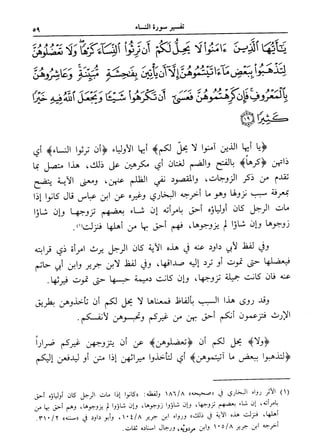 تفسير سورة النساء ٥٩
يَٰٓأَيُّهَا ٱلَّذِينَ ءَامَنُوا۟ لَا يَحِلُّ لَكُمْ أَن تَرِثُوا۟ ٱلنِّسَآءَ كَرْهًا وَلَا تَعْضُلُوهُنَّ
لِتَذْهَبُوا۟ بِبَعْضِ مَآ ءَاتَيْتُمُوهُنَّ إِلَّآ أَن يَأْتِينَ بِفَٰحِشَةٍ مُّبَيِّنَةٍ وَعَاشِرُوهُنَّ
بِٱلْمَعْرُوفِ فَإِن كَرِهْتُمُوهُنَّ فَعَسَىٰٓ أَن تَكْرَهُوا۟ شَيْـًٔا وَيَجْعَلَ ٱللَّهُ فِيهِ خَيْرًا
كَثِيرًا ﴿١٩﴾
﴿يا أيها الذين آمنوا لا يحل لكم﴾ أيها الأولياء ﴿أن ترثوا النساء﴾ أي
ذاتهن ﴿كرهاً﴾ بالفتح والضم لغتان أي مكرهين على ذلك، هذا متصل بما
تقدم من ذكر الزوجات، والمقصود نفي الظلم عنهن، ومعنى الآية يتضح
بمعرفة سبب نزولها وهو ما أخرجه البخاري وغيره عن ابن عباس قال كانوا إذا
مات الرجل كان أولياؤه أحق بامرأته إن شاء بعضهم تزوجها وإن شاؤا
زوجوها وإن شاؤا لم يزوجوها، فهم أحق بها من أهلها فنزلت(١).
وفي لفظ لأبي داود عنه في هذه الآية كان الرجل يرث امرأة ذي قرابته
فيعضلها حتى تموت أو ترد إليه صداقها، وفي لفظ لابن جرير وابن أبي حاتم
عنه فإن كانت جميلة تزوجها، وإن كانت دميمة حبسها حتى تموت فيرثها.
وقد روى هذا السبب بألفاظ فمعناها لا يحل لكم أن تأخذوهن بطريق
الإرث فتزعمون أنكم أحق بهن من غيركم وتحبسوهن لأنفسكم.
﴿ولا﴾ يحل لكم أن ﴿تعضلوهن﴾ عن أن يتزوجهن غيركم ضراراً
﴿لتذهبوا ببعض ما آتيتموهن﴾ أي لتأخذوا ميراثهن إذا متن أو ليدفعن إليكم
(١) الأثر رواه البخاري في «صحيحه» ١٨٦/٨ ولفظه: «كانوا إذا مات الرجل كان أولياؤه أحق
بامرأته، إن شاء بعضهم تزوجها، وإن شاؤوا زوجوها، وإن شاؤوا لم يزوجوها، وهم أحق بها من
أهلها، فنزلت هذه الآية في ذلك» ورواه ابن جرير ١٠٤/٨، وأبو داود في «سننه» ٣١٠/٢.
أخرجه ابن جرير ١٠٥/٨ وابن مردويه، ورجال اسناده ثقات.